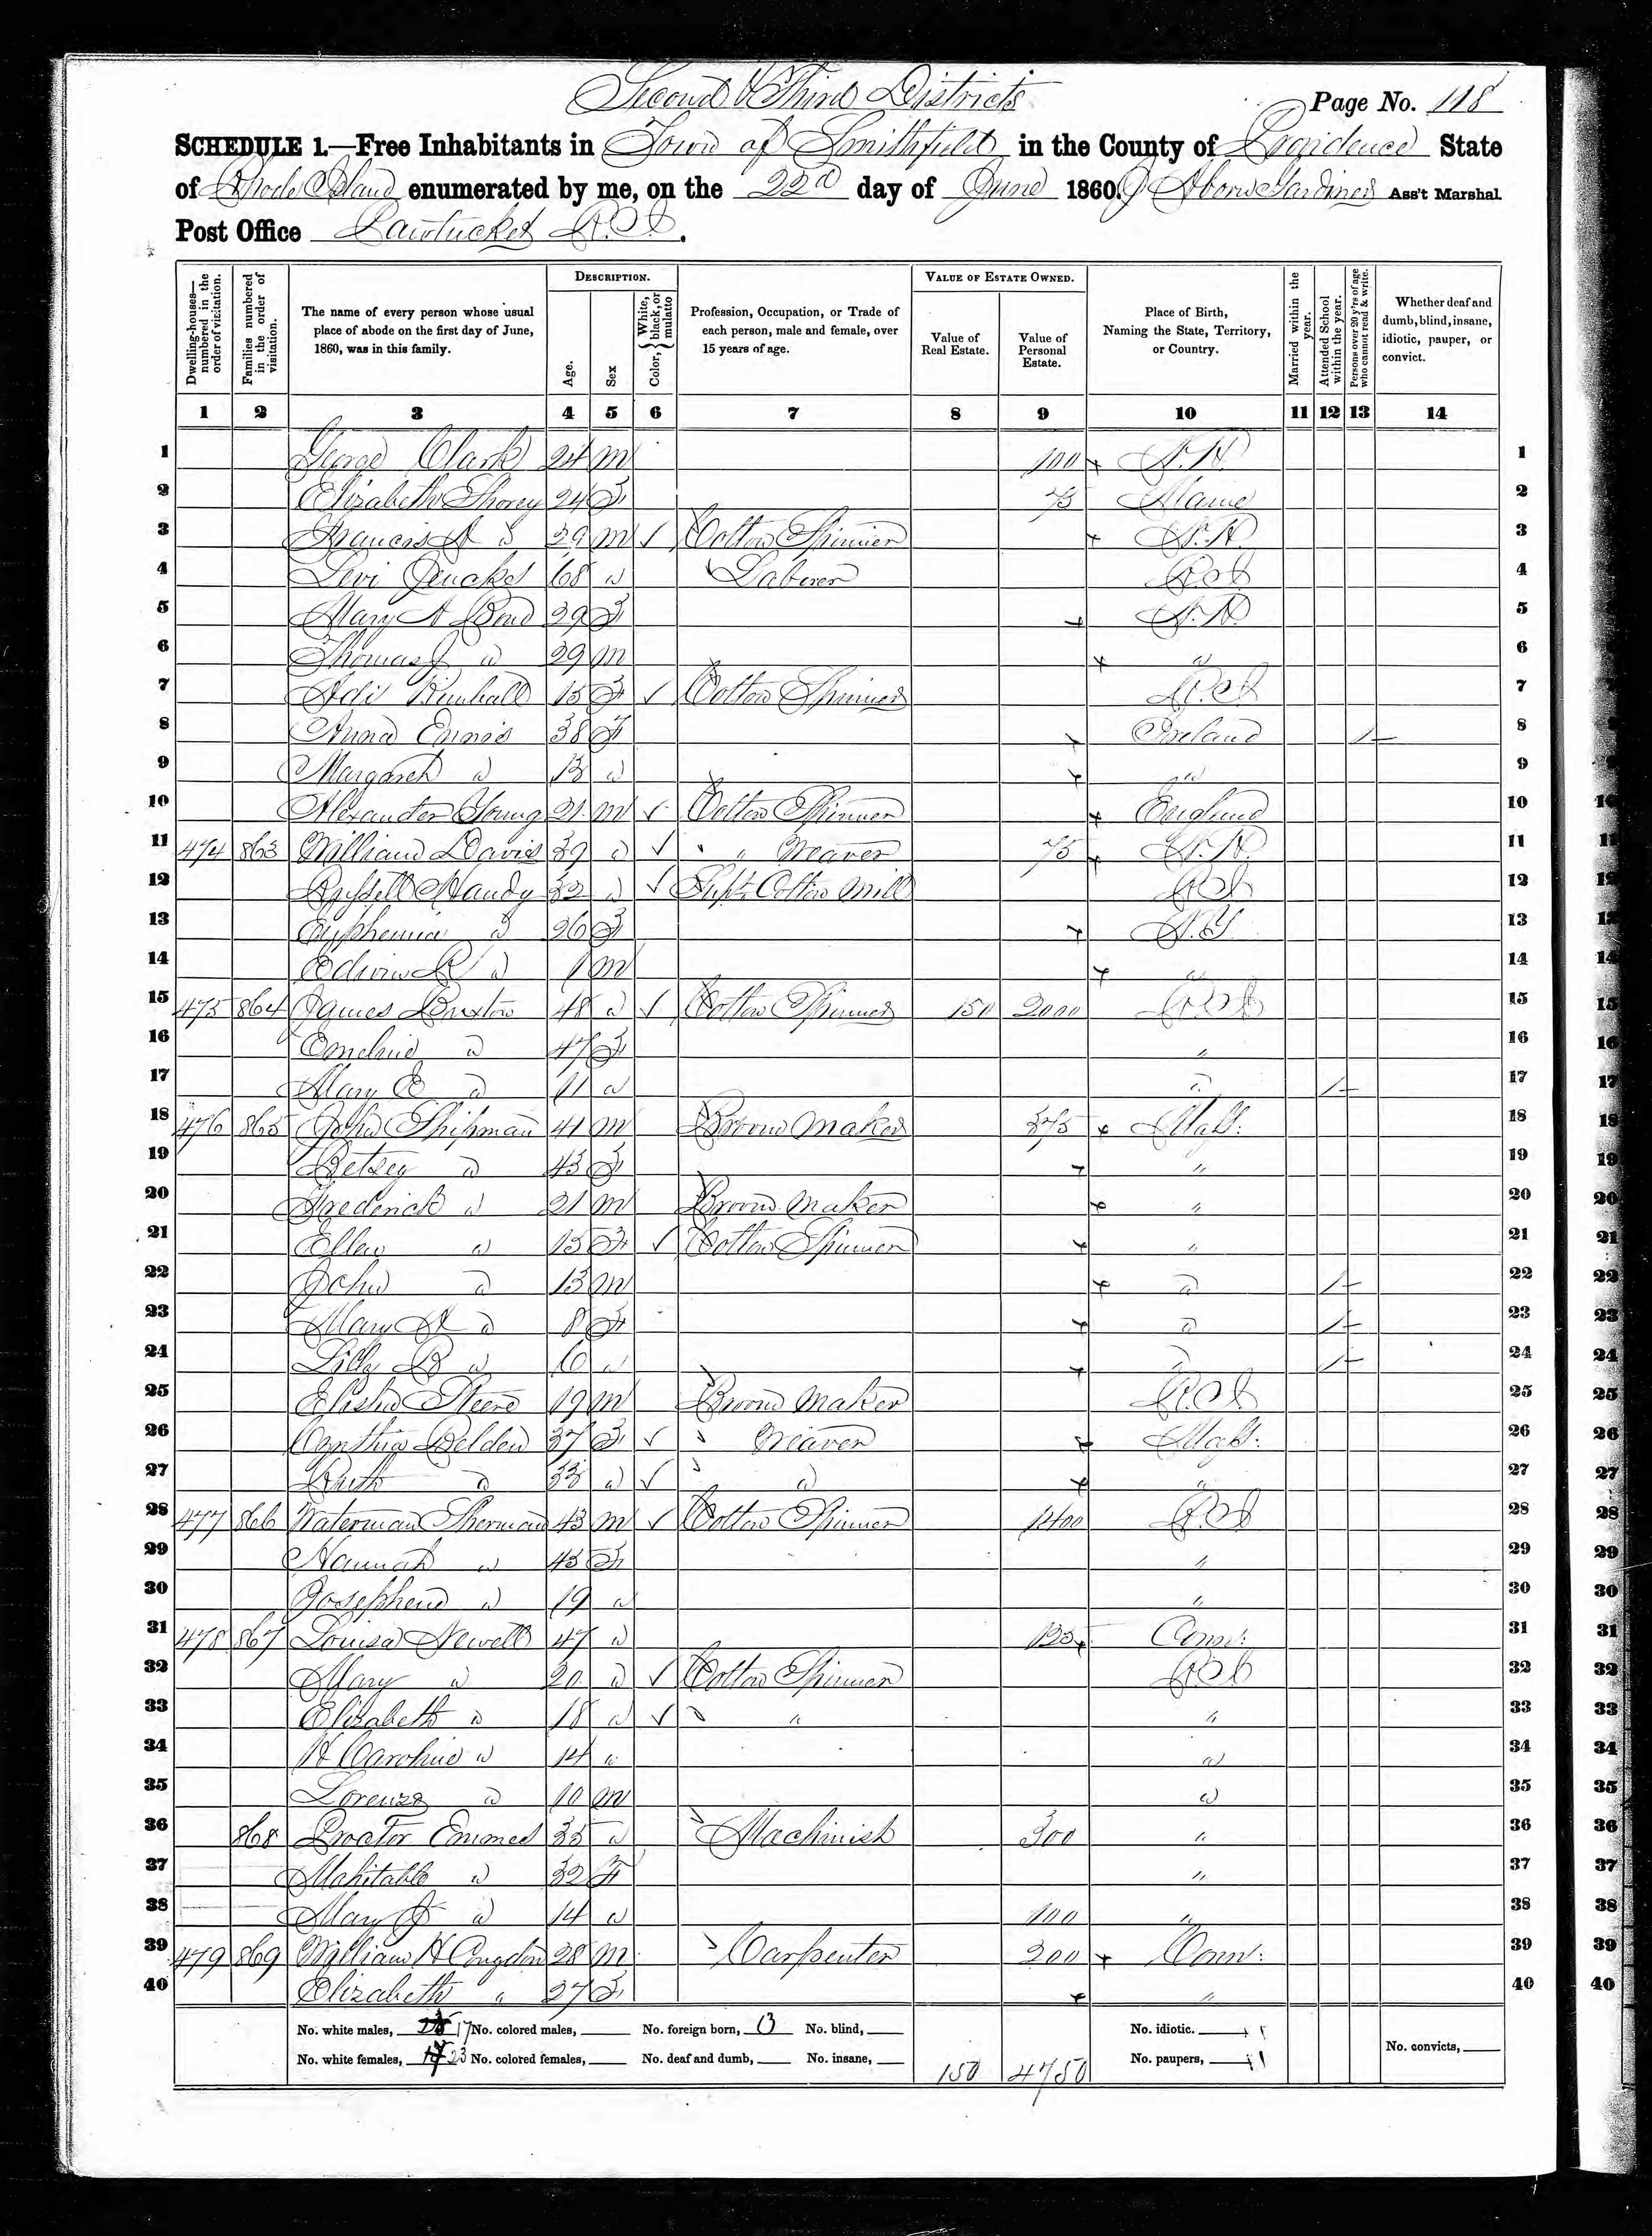 Second & Third Districts
Page No. 118
SCHEDULE 1.—Free Inhabitants in Town of Smithfield in the County of Providence State
of Rhode Island enumerated by me, on the 22d day of June 1860. Ass't Marshal.
Post Office Pawtucket R.I.
DESCRIPTION. VALUE OF ESTATE OWNED.
Dwelling-houses—numbered in the order of visitation. Families numbered in the order of visitation. The name of every person whose usual place of abode on the first day of June, 1860, was in this family. Age. Sex Color, { White, black, or mulatto Profession, Occupation, or Trade of each person, male and female, over 15 years of age. Value of Real Estate. Value of Personal Estate. Place of Birth, Naming the State, Territory, or Country. Married within the year. Attended School within the year. Persons over 20 y'rs of age who cannot read & write. Whether deaf and dumb, blind, insane, idiotic, pauper, or convict.
1 2 3 4 5 6 7 8 9 10 11 12 13 14
1 George Clark 24 m 100 N.H. 1
2 Elizabeth Shorey 24 F 75 Maine 2
3 Francis A " 29 m ✓ Cotton Spinner N.H. 3
4 Levi Jenckes 68 " Laborer R.I. 4
5 Mary A Bond 29 F N.H. 5
6 Thomas J " 29 m " 6
7 Kimball 15 F ✓ Cotton Spinner R.I. 7
8 Anna Ennis 38 F Ireland 1 8
9 Margaret " 13 " " 9
10 Alexander Young 21 m ✓ Cotton Spinner England 10
11 474 863 William Davis 39 " ✓ " Weaver 75 N.H. 11
12 Russell Handy 32 " ✓ Supt. Cotton Mill R.I. 12
13 Euphemia " 26 F N.Y. 13
14 Edwin R " 1 m " 14
15 475 864 James Buxton 48 " ✓ Cotton Spinner 150 2000 R.I. 15
16 Emeline " 47 F " 16
17 Mary E " 11 " " 1 17
18 476 865 John Shipman 41 m Broom Maker 375 Mass: 18
19 Betsey " 43 F " 19
20 Frederick " 21 m Broom Maker " 20
21 Ellen " 15 F ✓ Cotton Spinner " 21
22 John " 13 m " 1 22
23 Mary A " 8 F " 1 23
24 Lilly B " 6 " " 1 24
25 Elisha Steere 19 m Broom Maker R.I. 25
26 Cynthia Belden 37 F ✓ Weaver Mass: 26
27 Ruth " 33 " ✓ " " 27
28 477 866 Waterman Sherman 43 m ✓ Cotton Spinner 1400 R.I. 28
29 Hannah " 43 F " 29
30 Josephene " 19 " " 30
31 478 867 Louisa Newell 47 " 125 Conn: 31
32 Mary " 20 " ✓ Cotton Spinner R.I. 32
33 Elizabeth " 18 " ✓ " " 33
34 H Caroline " 14 " " 34
35 Lorenzo " 10 m " 35
36 868 Proctor Emmes 35 " Machinist 300 " 36
37 Mahitable " 32 F " 37
38 Mary J " 14 " 100 " 38
39 479 869 William H Congdon 28 m Carpenter 200 Conn: 39
40 Elizabeth " 27 F " 40
No. white males, 17 No. colored males, No. foreign born, 3 No. blind, No. idiotic.
No. white females, 23 No. colored females, No. deaf and dumb, No. insane, 150 4750 No. paupers, No. convicts,